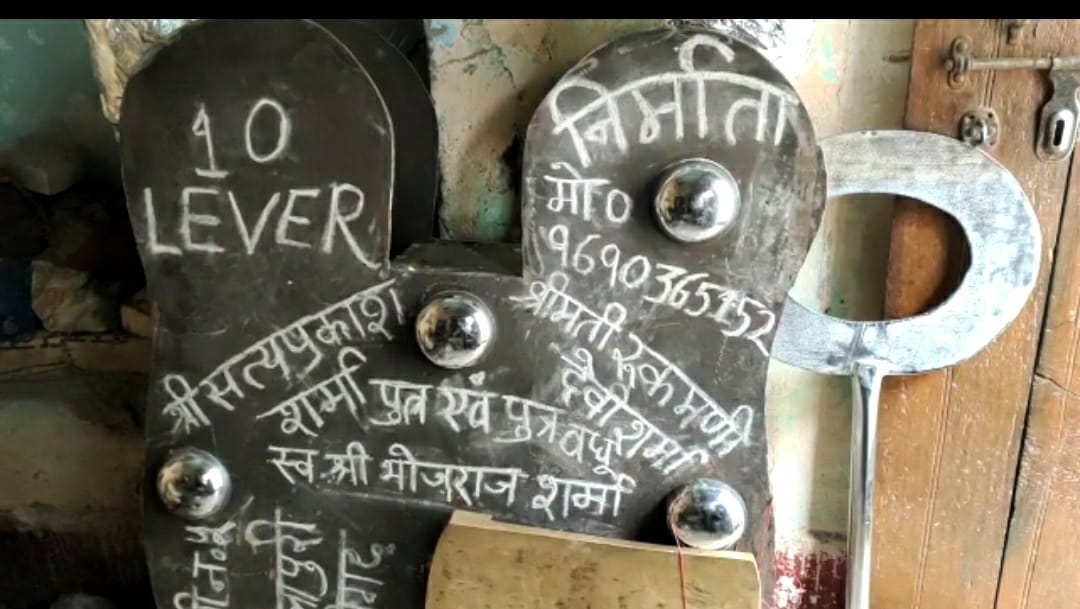 10
LEVER
निर्माता
मो०
9690365152
श्री सत्यप्रकाश
शर्मा पुत्र एवं पुत्रवधू
श्रीमती रुकमणी
देवी शर्मा
स्व. श्री भोजराज शर्मा